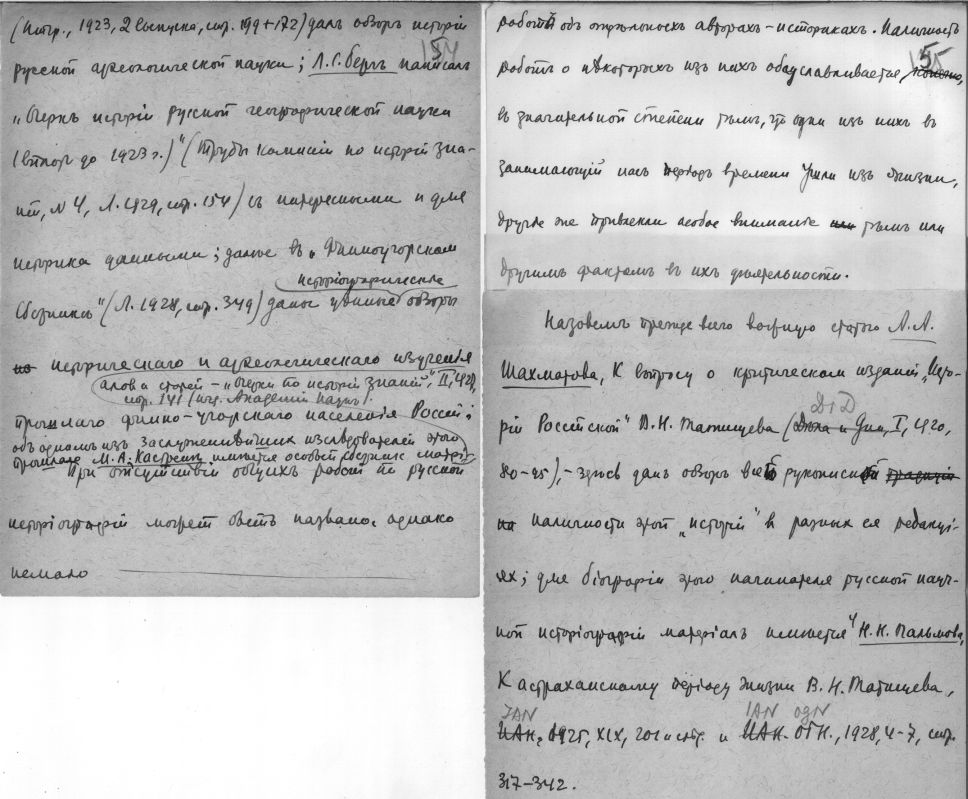 (Пгр., 1923, 2 выпуска, стр. 199+172) далъ обзоръ исторiи
154
русской археологической науки; Л.С. Бергъ написалъ
„Очеркъ исторiи русской географической науки
(вплоть до 1923 г.)" (Труды Комиссiи по исторiи зна-
нiй, № 4, Л. 1929, стр. 154) съ интересными и для
историка данными; далѣе въ „Финноугорскомъ
исторiографические
Сборникѣ" (Л. 1928, стр. 349) даны цѣнные обзоры
историческаго и археологическаго изученiя
„Очерки по исторiи знанiй", II, 1927,
стр. 141 (изд. Академiи Наукъ).
прошлаго финно-угорскаго населенiя Россiи;
объ одномъ изъ заслуженнѣйшихъ изслѣдователей этого
прошлаго М.А. Кастренѣ имѣется особый сборникъ
При отсутствiи общихъ работъ по русской
исторiографiи можетъ быть названо однако
немало
работъ объ отдѣльныхъ авторахъ-историкахъ. Наличность
155
работъ о нѣкоторыхъ изъ нихъ обуславливается, конечно,
въ значительной степени тѣмъ, что одни изъ нихъ въ
занимающiй насъ перiодъ времени ушли изъ жизни,
другiе же привлекли особое вниманiе или тѣмъ или
другимъ фактомъ въ ихъ дѣятельности.
Назовемъ прежде всего важную статью А.А.
Шахматова, Къ вопросу о критическомъ изданiи „Исто-
DiD
рiи Россiйской" В.Н. Татищева (Дѣла и Дни, I, 1920,
80-95),- здѣсь данъ обзоръ всей рукописной традицiи
на наличности этой „исторiи" въ разныхъ ея редакцi-
яхъ; для бiографiи этого начинателя русской науч-
ной исторiографiи матерiалъ имѣется у Н.Н. Пальмова,
Къ астраханскому перiоду жизни В.Н. Татищева,
IAN IAN OGN
ИАН, 1925, XIX, 201 и слѣд. и ИАН. ОГН., 1928, 4-7, стр.
317-342.